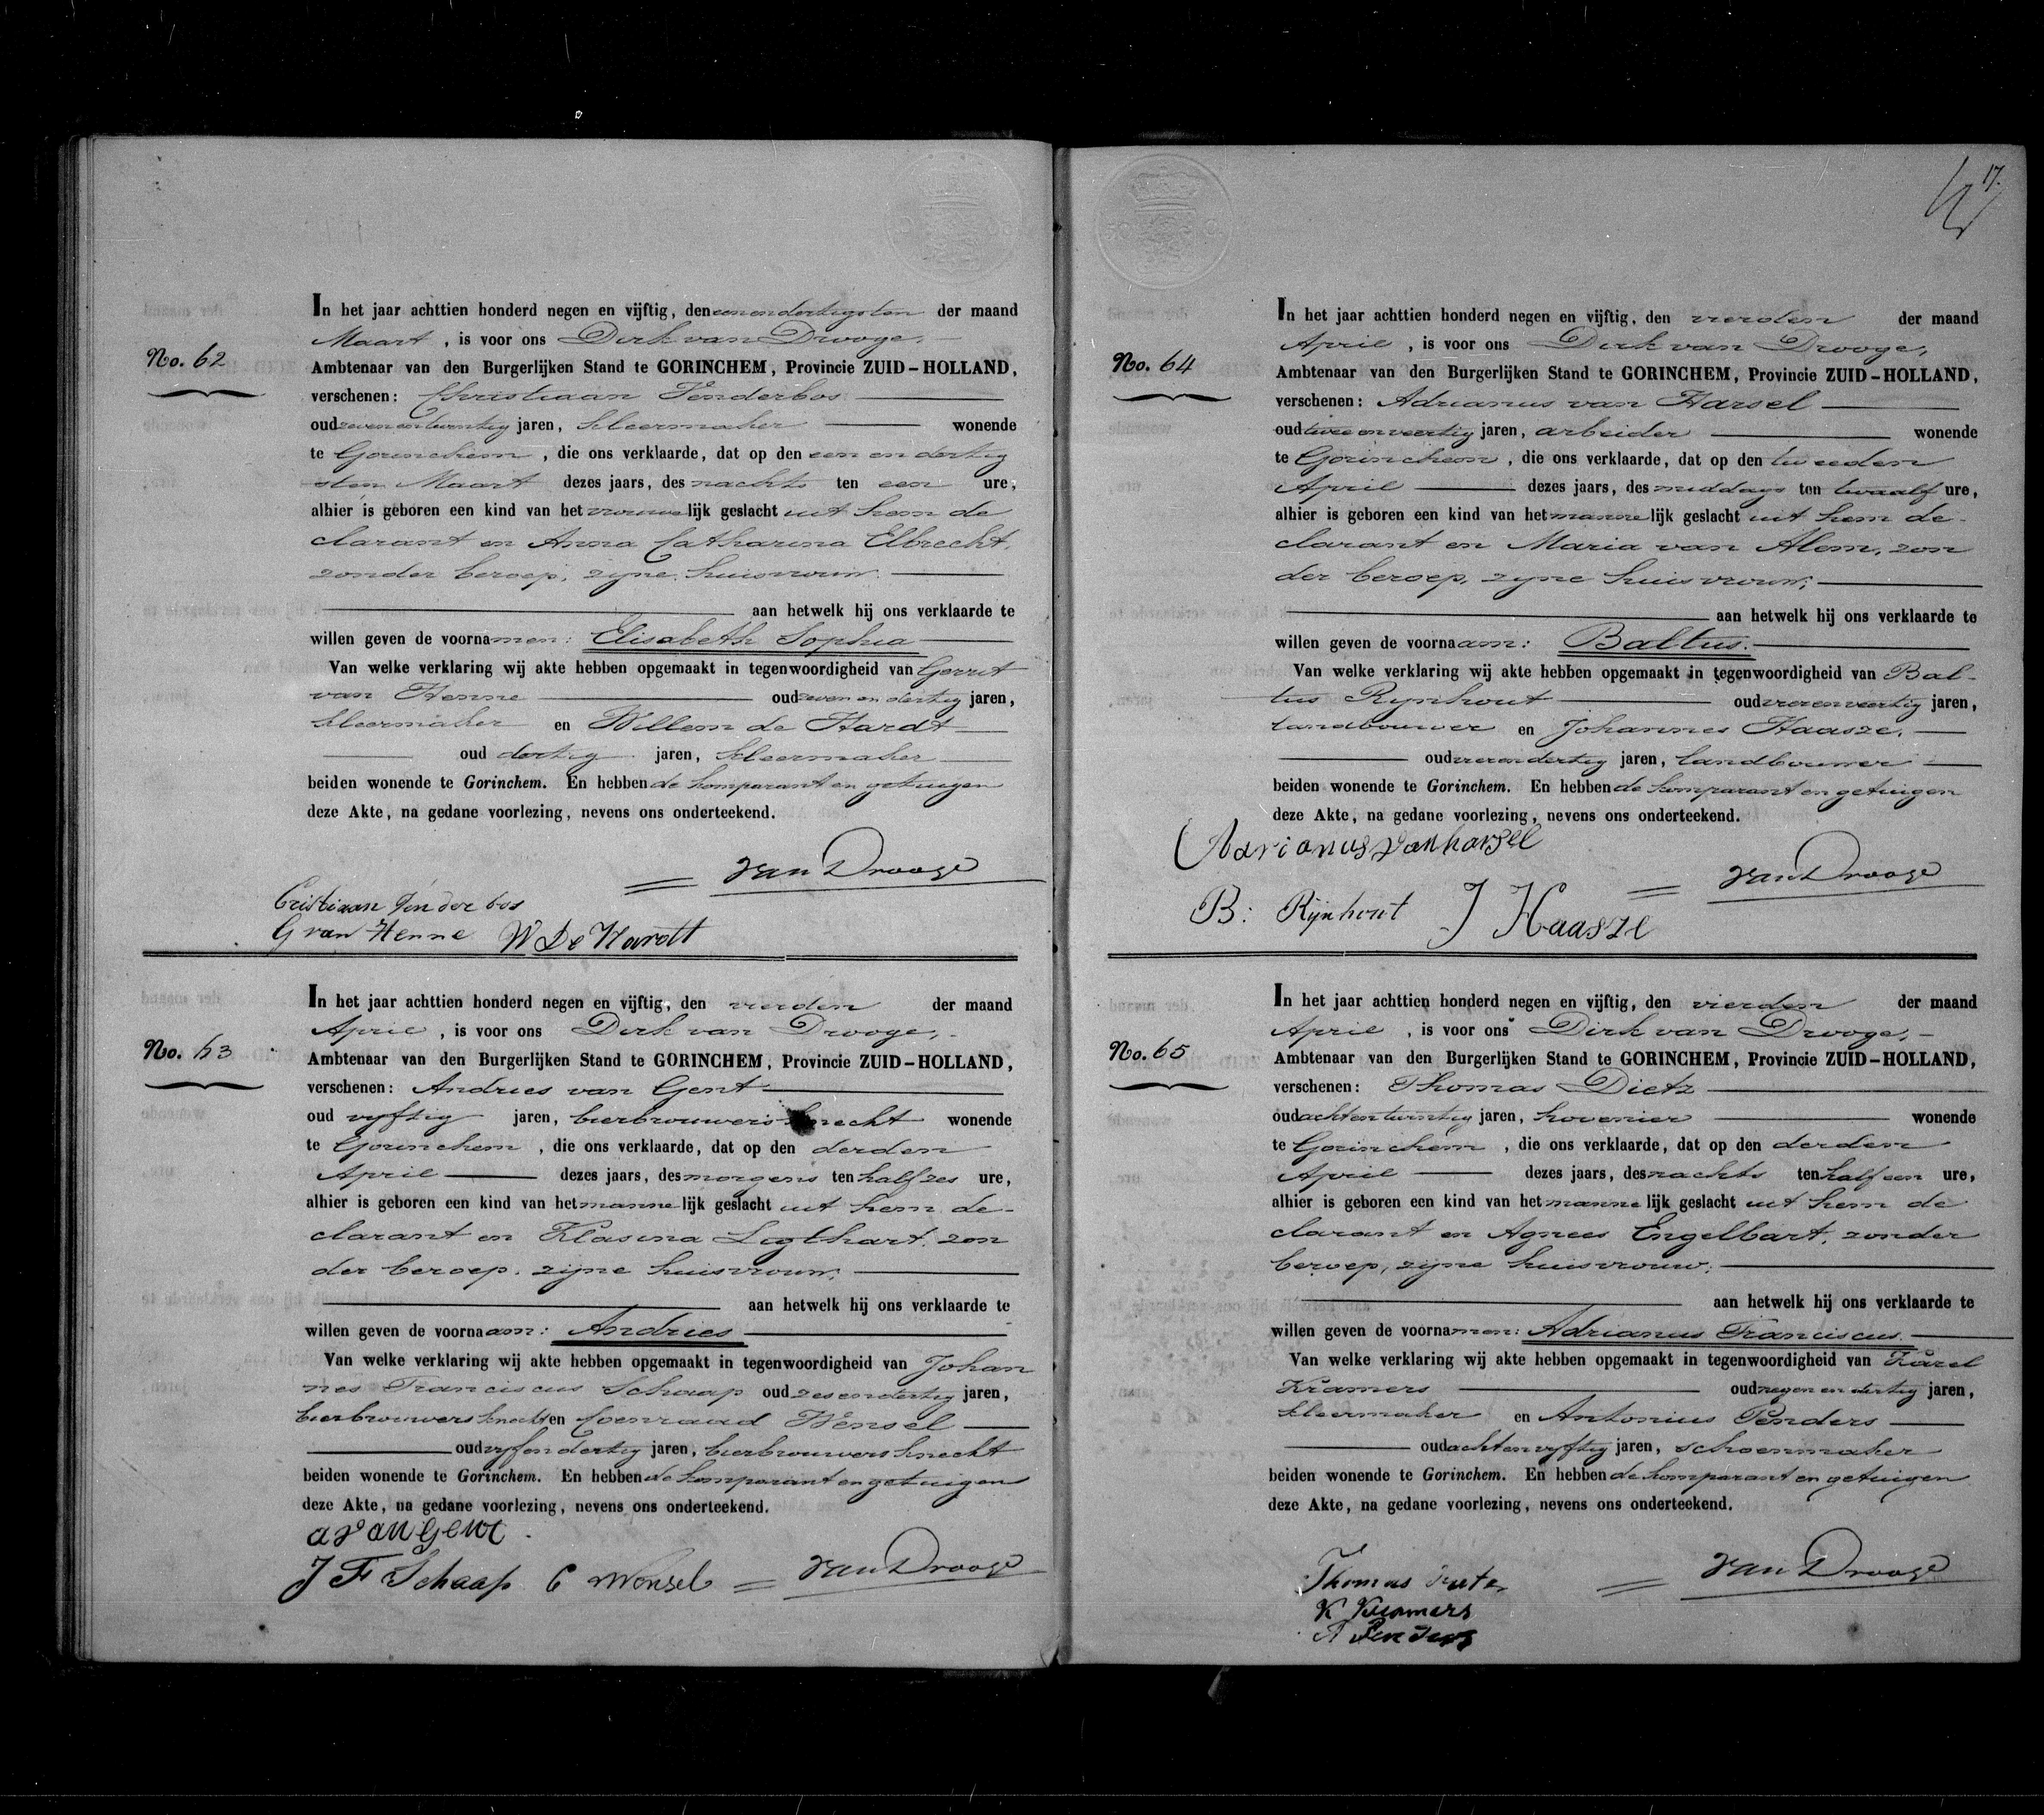 No. 62
In het jaar achttien honderd negen en vijftig, den eenendertigsten der maand
Maart, is voor ons Dirk van Drooge,
Ambtenaar van den Burgerlijken Stand te GORINCHEM, Provincie ZUID-HOLLAND,
verschenen: Christiaan Tenderbos
oud zevenentwintig jaren, kleermaker wonende
te Gorinchem, die ons verklaarde, dat op den een en dertig
sten Maart dezes jaars, des nachts ten een ure,
alhier is geboren een kind van het vrouwelijk geslacht uit hem de
clarant en Anna Catharina Elbrecht,
zonder beroep, zyne huisvrouw.
aan hetwelk hij ons verklaarde te
willen geven de voornamen: Elisabeth Sophia
Van welke verklaring wij akte hebben opgemaakt in tegenwoordigheid van Gerrit
van Henne oud zevenendertig jaren,
kleermaker en Willem de Hardt
oud dertig jaren, kleermaker
beiden wonende te Gorinchem. En hebben de komparant en getuigen
deze Akte, na gedane voorlezing, nevens ons onderteekend.
van Drooge
Cristiaan Ten der bos
G van Henne W De Hardt
No. 63
In het jaar achttien honderd negen en vijftig, den vierden der maand
April, is voor ons Dirk van Drooge,
Ambtenaar van den Burgerlijken Stand te GORINCHEM, Provincie ZUID-HOLLAND,
verschenen: Andries van Gent
oud vyftig jaren, bierbrouwersknecht wonende
te Gorinchem, die ons verklaarde, dat op den derden
April dezes jaars, des morgens ten half zes ure,
alhier is geboren een kind van het mannelijk geslacht uit hem de-
clarant en Klasina Ligthart, zon
der beroep, zijne huisvrouw;
aan hetwelk hij ons verklaarde te
willen geven de voornaam: Andries
Van welke verklaring wij akte hebben opgemaakt in tegenwoordigheid van Johan
nes Franciscus Schaap oud zesendertig jaren,
bierbrouwersknecht en Coenraad Wensel
oud vyfendertig jaren, bierbrouwersknecht
beiden wonende te Gorinchem. En hebben de komparant en getuigen
deze Akte, na gedane voorlezing, nevens ons onderteekend.
a van gent
J F Schaap C Wensel van Drooge
17.
No. 64
In het jaar achttien honderd negen en vijftig, den vierden der maand
April, is voor ons Dirk van Drooge,
Ambtenaar van den Burgerlijken Stand te GORINCHEM, Provincie ZUID-HOLLAND,
verschenen: Adrianus van Harsel
oud tweeenveertig jaren, arbeider wonende
te Gorinchem, die ons verklaarde, dat op den tweeden
April dezes jaars, des middags ten twaalf ure,
alhier is geboren een kind van het mannelijk geslacht uit hem de-
clarant en Maria van Alem, zon
der beroep, zyne huisvrouw;
aan hetwelk hij ons verklaarde te
willen geven de voornaam: Baltus.
Van welke verklaring wij akte hebben opgemaakt in tegenwoordigheid van Bal-
tus Rynhout oud vierenveertig jaren,
landbouwer en Johannes Haasze,
oud vierendertig jaren, landbouwer
beiden wonende te Gorinchem. En hebben de komparant en getuigen
deze Akte, na gedane voorlezing, nevens ons onderteekend.
Adrianus van harsel
van Drooge
B: Rijnhout J Haasze
No. 65
In het jaar achttien honderd negen en vijftig, den vierden der maand
April, is voor ons Dirk van Drooge,
Ambtenaar van den Burgerlijken Stand te GORINCHEM, Provincie ZUID-HOLLAND,
verschenen: Thomas Dietz
oud achtentwintig jaren, hovenier wonende
te Gorinchem, die ons verklaarde, dat op den derden
April dezes jaars, des nachts ten half een ure,
alhier is geboren een kind van het mannelijk geslacht uit hem de
clarant en Agnees Engelbart, zonder
beroep, zijne huisvrouw;
aan hetwelk hij ons verklaarde te
willen geven de voornamen: Adrianus Franciscus.
Van welke verklaring wij akte hebben opgemaakt in tegenwoordigheid van Karel
Kramers oud negenendertig jaren,
kleermaker en Antonius Penders
oud achtenvyftig jaren, schoenmaker
beiden wonende te Gorinchem. En hebben de komparant en getuigen
deze Akte, na gedane voorlezing, nevens ons onderteekend.
van Drooge
Thomas
K Kramers
A Penders